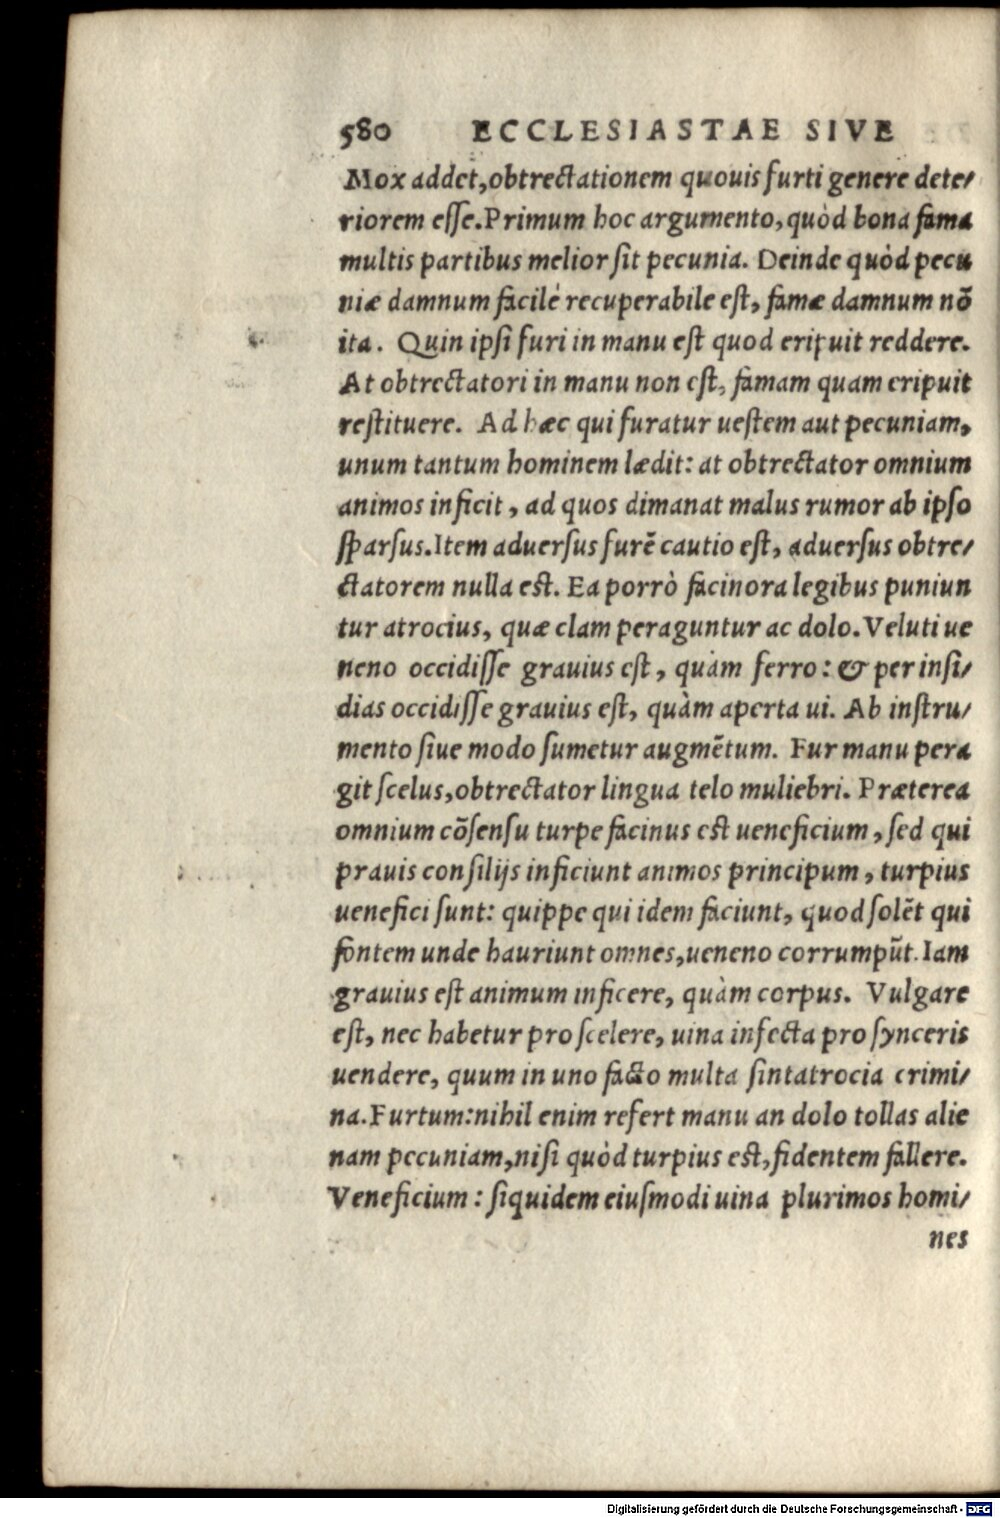 580 ECCLESIASTAE SIVE
Mox addet, obtrectationem quouis furti genere dete/
riorem esse. Primum hoc argumento, quòd bona fama
multis partibus melior sit pecunia. Deinde quòd pecu
niæ damnum facilè recuperabile est, famæ damnum nō
ita. Quin ipsi furi in manu est quod eripuit reddere.
At obtrectatori in manu non est, famam quam eripuit
restituere. Ad hæc qui furatur uestem aut pecuniam,
unum tantum hominem lædit: at obtrectator omnium
animos inficit, ad quos dimanat malus rumor ab ipso
sparsus. Item aduersus furē cautio est, aduersus obtre/
ctatorem nulla est. Ea porrò facinora legibus puniun
tur atrocius, quæ clam peraguntur ac dolo. Veluti ue
neno occidisse grauius est, quàm ferro: & per insi/
dias occidisse grauius est, quàm aperta ui. Ab instru/
mento siue modo sumetur augmētum. Fur manu pera
git scelus, obtrectator lingua telo muliebri. Præterea
omnium cōsensu turpe facinus est ueneficium, sed qui
prauis consilijs inficiunt animos principum, turpius
uenefici sunt: quippe qui idem faciunt, quod solēt qui
fontem unde hauriunt omnes, ueneno corrumpūt. Iam
grauius est animum inficere, quàm corpus. Vulgare
est, nec habetur pro scelere, uina infecta pro synceris
uendere, quum in uno facto multa sint atrocia crimi/
na. Furtum: nihil enim refert manu an dolo tollas alie
nam pecuniam, nisi quòd turpius est, fidentem fallere.
Veneficium: siquidem eiusmodi uina plurimos homi/
nes
Digitalisierung gefördert durch die Deutsche Forschungsgemeinschaft - DFG